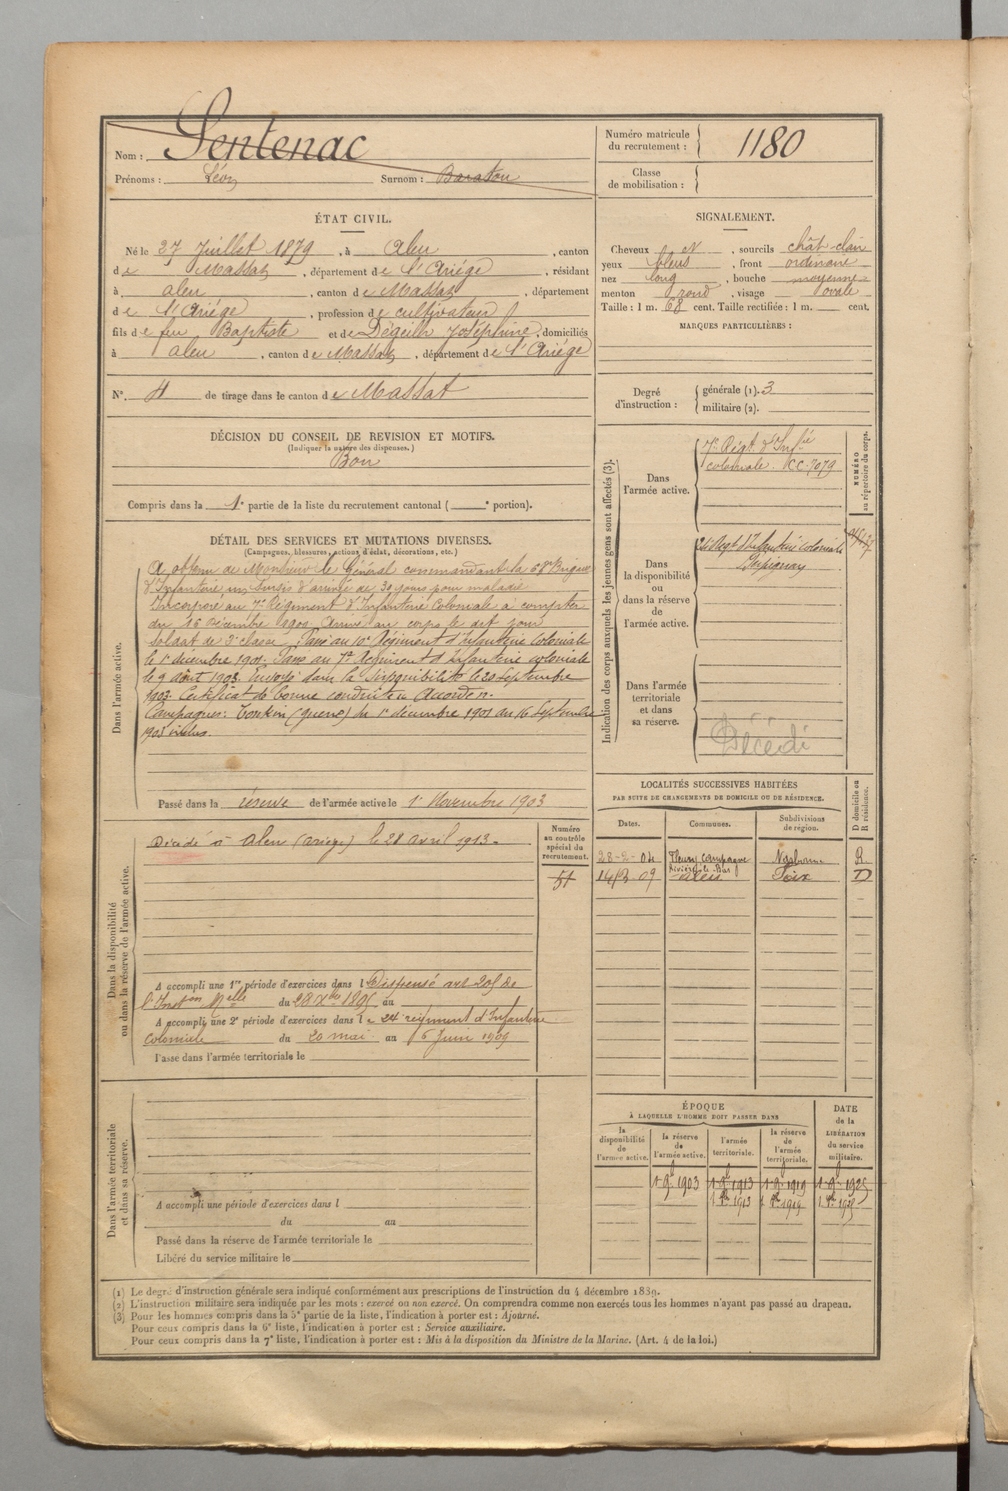 Nom : Sentenac
Prénoms : Léon Surnom : Baraton
Numéro matricule du recrutement : 1180
Classe de mobilisation :
ÉTAT CIVIL.
Né le 27 Juillet 1879, à Aleu, canton
de Massat, département de l'Ariége, résidant
à aleu, canton de Massat, département
de l'Ariége, profession de cultivateur
fils de feu Baptiste et de Degeilh Joséphine, domiciliés
à aleu, canton de Massat, département de l'Ariége
N° 4 de tirage dans le canton de Massat
SIGNALEMENT.
Cheveux N, sourcils chât-clair
yeux bleus, front ordinaire
nez long, bouche moyenne
menton rond, visage ovale
Taille : 1 m. 68 cent. Taille rectifiée : 1 m. cent.
MARQUES PARTICULIÈRES :
Degré d'instruction : générale (1). 3
militaire (2).
DÉCISION DU CONSEIL DE REVISION ET MOTIFS.
(Indiquer la nature des dispenses.)
Bon
Compris dans la 1e partie de la liste du recrutement cantonal ( e portion).
DÉTAIL DES SERVICES ET MUTATIONS DIVERSES.
(Campagnes, blessures, actions d'éclat, décorations, etc.)
Dans l'armée active.
A obtenu de Monsieur le Général commandant la 68e Brigade
d'Infanterie un Sursis d'arrivée de 30 jours pour maladie
Incorporé au 7e Régiment d'Infanterie Coloniale à compter
du 16 Décembre 1900. Arrivé au corps le dit jour
soldat de 2e classe. Passé au 10e Régiment d'Infanterie Coloniale
le 1er décembre 1901. Passé au 7e Régiment d'Infanterie coloniale
le 9 août 1903. Renvoyé dans la disponibilité le 20 Septembre
1903. Certificat de bonne conduite Accordé.
Campagnes : Tonkin (guerre) du 1er décembre 1901 au 16 Septembre
1903 inclus.
Passé dans la réserve de l'armée active le 1er Novembre 1903
Indication des corps auxquels les jeunes gens sont affectés (3).
NUMÉRO au répertoire du corps.
Dans l'armée active.
7e Régt d'Infie
coloniale. KC. 7079
Dans la disponibilité ou dans la réserve de l'armée active.
Regt d'Infanterie coloniale
Perpignan
Dans l'armée territoriale et dans sa réserve.
Décédé
Dans la disponibilité ou dans la réserve de l'armée active.
Décédé à Aleu (Ariège) le 28 avril 1913.
Numéro au contrôle spécial du recrutement.
51
A accompli une 1re période d'exercices dans l Dispensé art 205 de
l'Inston Melle du 28 Xbre 1895 au
A accompli une 2e période d'exercices dans le 24e régiment d'Infanterie
coloniale du 20 mai au 6 Juin 1909
Passé dans l'armée territoriale le
LOCALITÉS SUCCESSIVES HABITÉES
PAR SUITE DE CHANGEMENTS DE DOMICILE OU DE RÉSIDENCE.
D domicile ou R résidence.
Dates. Communes. Subdivisions de région.
28-2-04 Fleury campagne Narbonne R
14/2-09 Aleu Foix D
Dans l'armée territoriale et dans sa réserve.
A accompli une période d'exercices dans l
du au
Passé dans la réserve de l'armée territoriale le
Libéré du service militaire le
ÉPOQUE
À LAQUELLE L'HOMME DOIT PASSER DANS
DATE de la LIBÉRATION du service militaire.
la disponibilité de l'armée active. la réserve de l'armée active. l'armée territoriale. la réserve de l'armée territoriale.
1 9e 1903 1 9e 1913 1 9e 1919 1 9e 1925
(1) Le degré d'instruction générale sera indiqué conformément aux prescriptions de l'instruction du 4 décembre 1889.
(2) L'instruction militaire sera indiquée par les mots : exercé ou non exercé. On comprendra comme non exercés tous les hommes n'ayant pas passé au drapeau.
(3) Pour les hommes compris dans la 5e partie de la liste, l'indication à porter est : Ajourné.
Pour ceux compris dans la 6e liste, l'indication à porter est : Service auxiliaire.
Pour ceux compris dans la 7e liste, l'indication à porter est : Mis à la disposition du Ministre de la Marine. (Art. 4 de la loi.)